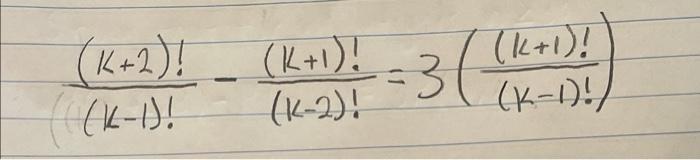 (k+2)!/(k-1)! - (k+1)!/(k-2)! = 3((k+1)!/(k-1)!)